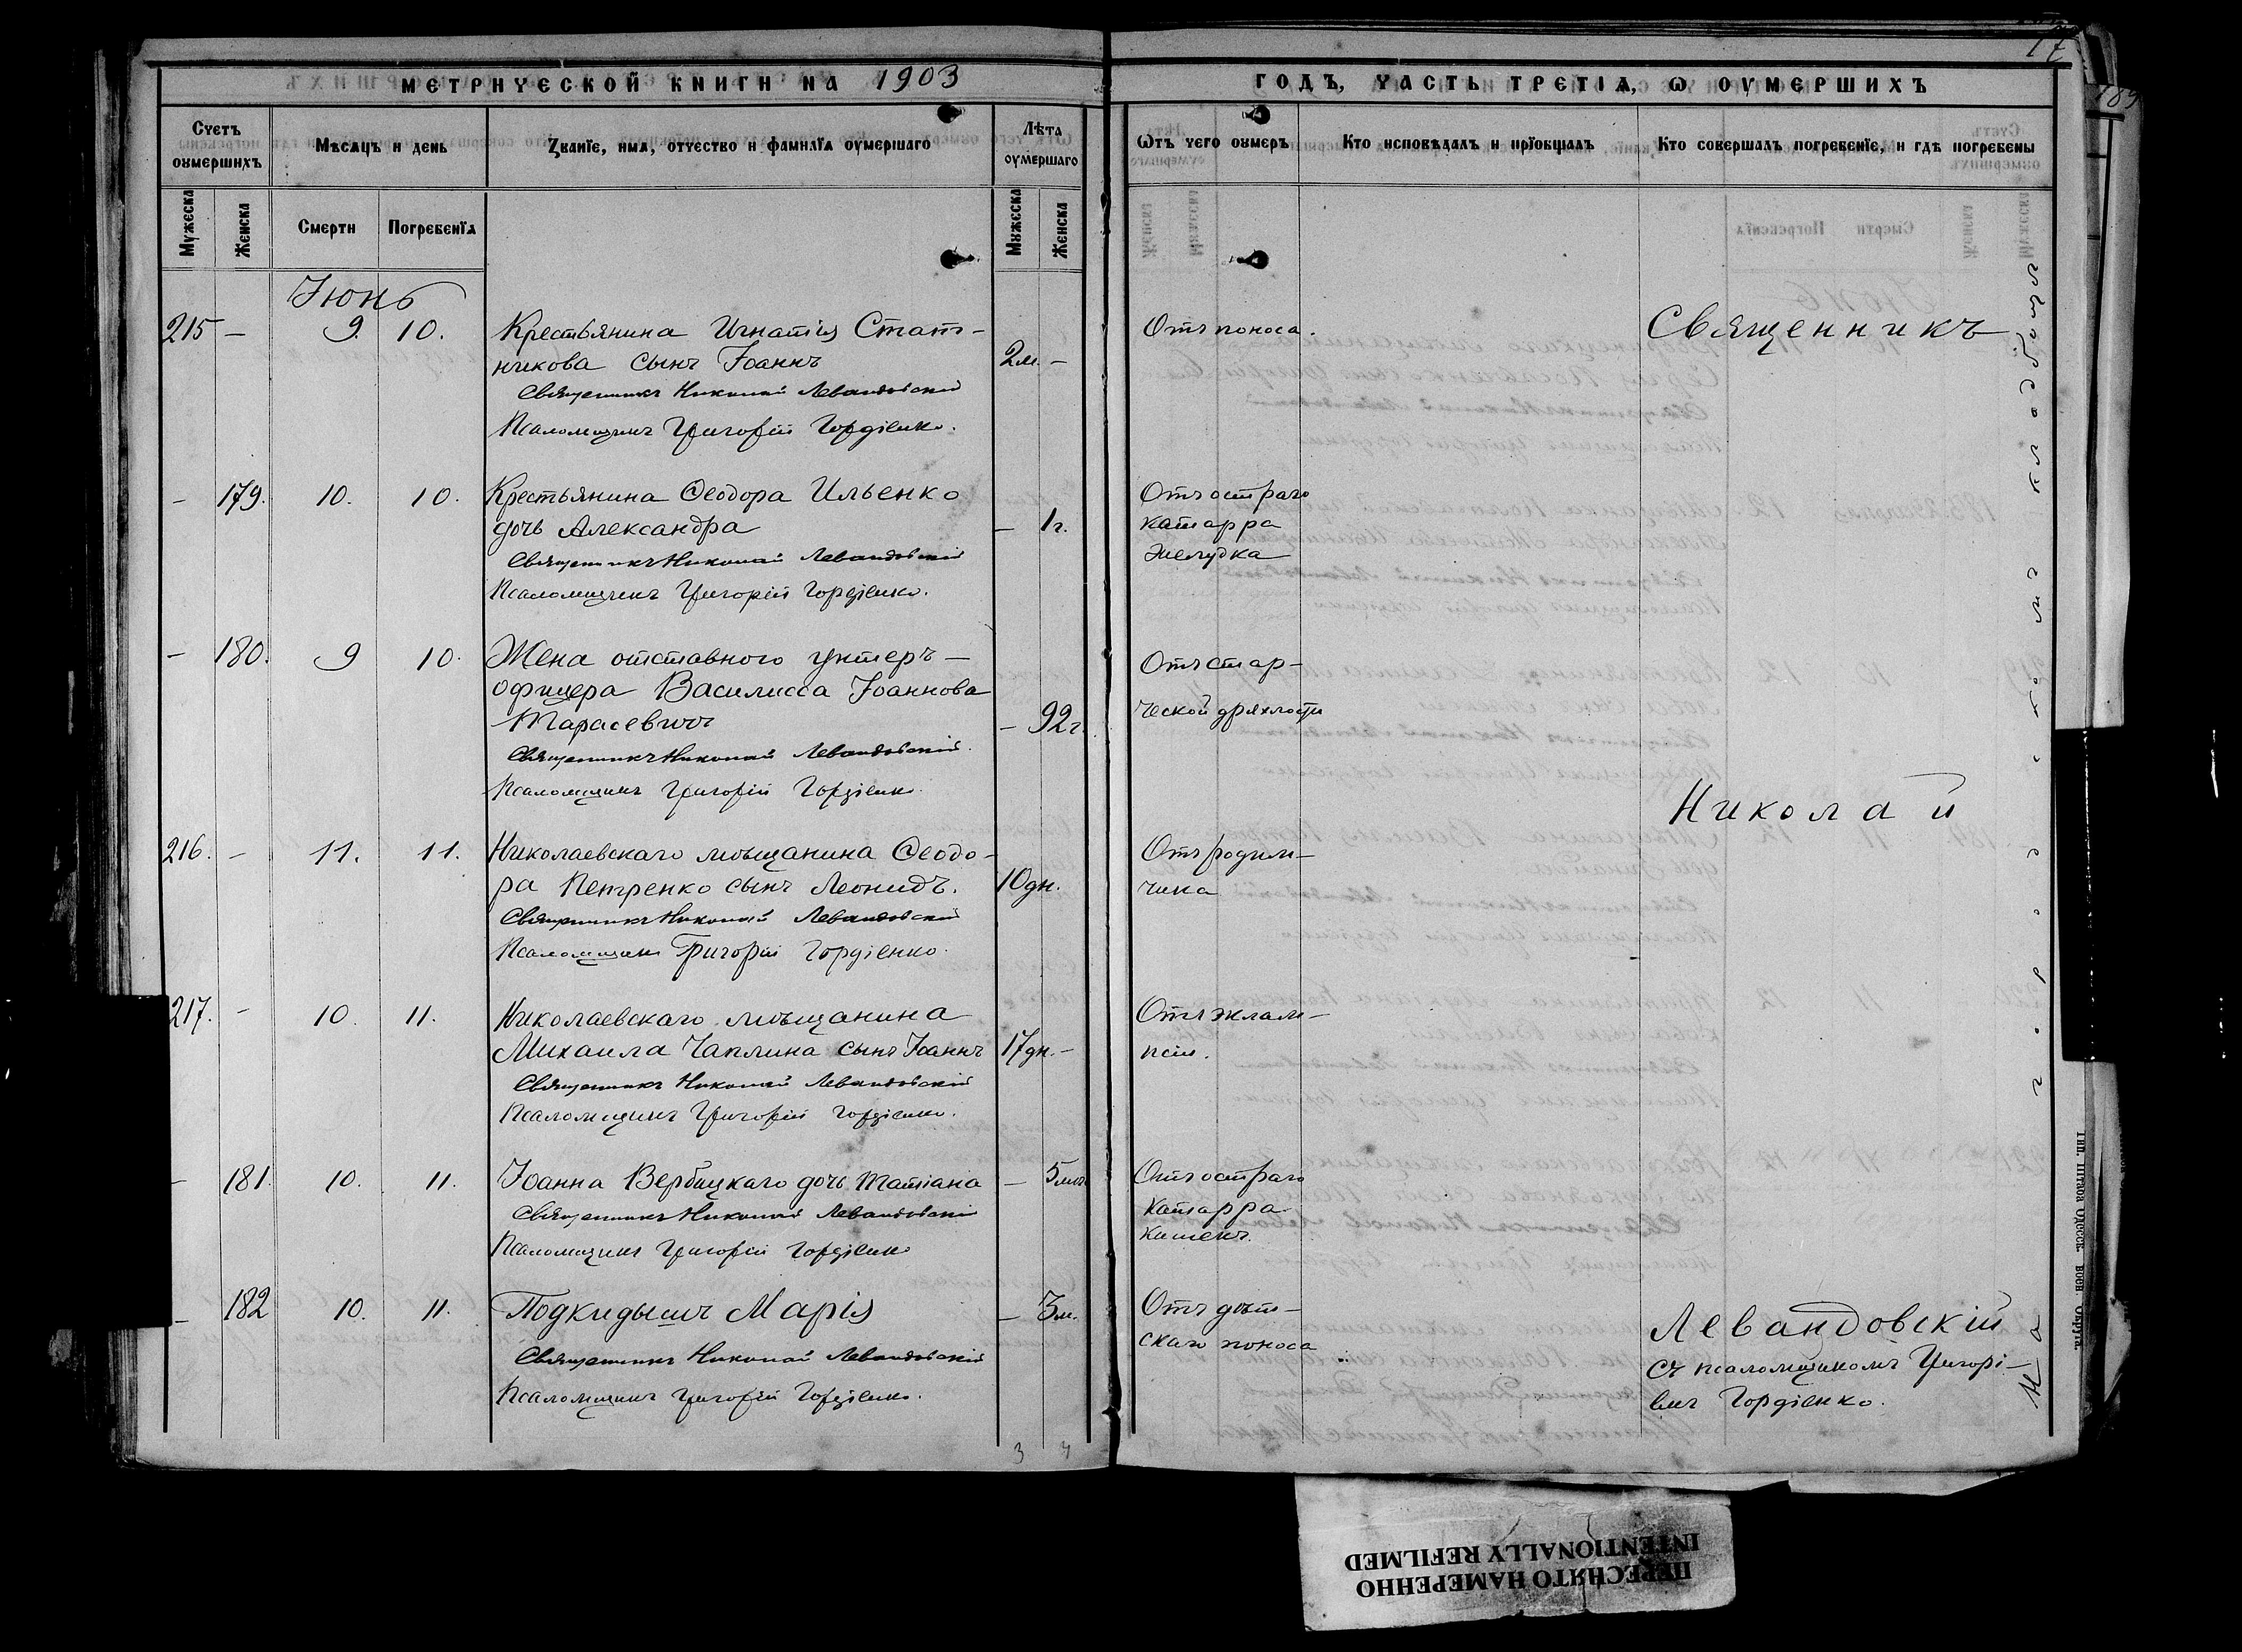 МЕТРИЧЕСКОЙ КНИГИ НА 1903
ГОДЪ, ЧАСТЬ ТРЕТІѦ, Ѡ ОУМЕРШИХЪ
Счетъ оумершихъ
Мѣсѧцъ и день
Званїе, имѧ, отчество и фамилїѧ оумершаго
Лѣта оумершаго
Ѿтъ чего оумеръ
Кто исповѣдалъ и прїобщалъ
Кто совершалъ погребенїе, и гдѣ погребены
Мужеска
Женска
Смерти
Погребенїѧ
Мужеска
Женска
Іюнь
215 – 9. 10. Крестьянина Игнатія Стат-
никова сынъ Іоаннъ 2м. –
Отъ поноса.
Священникъ Николай Левандовскій
Псаломщикъ Григорій Гордіенко.
– 179. 10. 10. Крестьянина Ѳеодора Ильенко
дочь Александра – 1г.
Отъ остраго
катарра
желудка
Священникъ Николай Левандовскій
Псаломщикъ Григорій Гордіенко.
– 180. 9 10. Жена отставного унтеръ–
офицера Василисса Іоаннова
Тарасевичъ – 92г.
Отъ стар–
ческой дряхлости
Священникъ Николай Левандовскій.
Псаломщикъ Григорій Гордіенко
216. – 11. 11. Николаевскаго мѣщанина Ѳеодо-
ра Петренко сынъ Леонидъ. 10дн.
Отъ родим–
чика
Священникъ Николай Левандовскій
Псаломщикъ Григорій Гордіенко.
217. – 10. 11. Николаевскаго мѣщанина
Михаила Чаплина сынъ Іоаннъ 17дн. –
Отъ эклам–
псіи.
Священникъ Николай Левандовскій
Псаломщикъ Григорій Гордіенко.
– 181. 10. 11. Іоанна Вербицкаго дочь Татіана –
Отъ остраго
катарра
кишекъ.
Священникъ Николай Левандовскій
Псаломщикъ Григорій Гордіенко
– 182 10. 11. Подкидышъ Марія – 3м.
Отъ дѣт–
скаго поноса
Священникъ Николай Левандовскій
Псаломщикъ Григорій Гордіенко.
3 4
Священникъ
Николай
Левандовскій
съ псаломщикомъ Григорі–
емъ Гордіенко.
На городскомъ кладбищѣ
ПЕРЕСНЯТО НАМЕРЕННО
INTENTIONALLY REFILMED